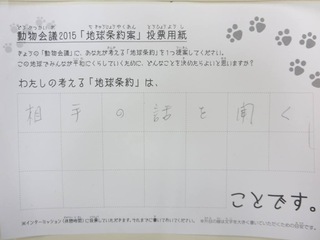 どうぶつかいぎ ちきゅうじょうやくあん とうひょうようし
動物会議2015「地球条約案」投票用紙
きょうの「動物会議」に、あなたが考える「地球条約」を1つ提案してください。
この地球でみんなが平和にくらしていくために、どんなことを決めたらよいと思いますか?
わたしの考える「地球条約」は、
相手の話を聞く
ことです。